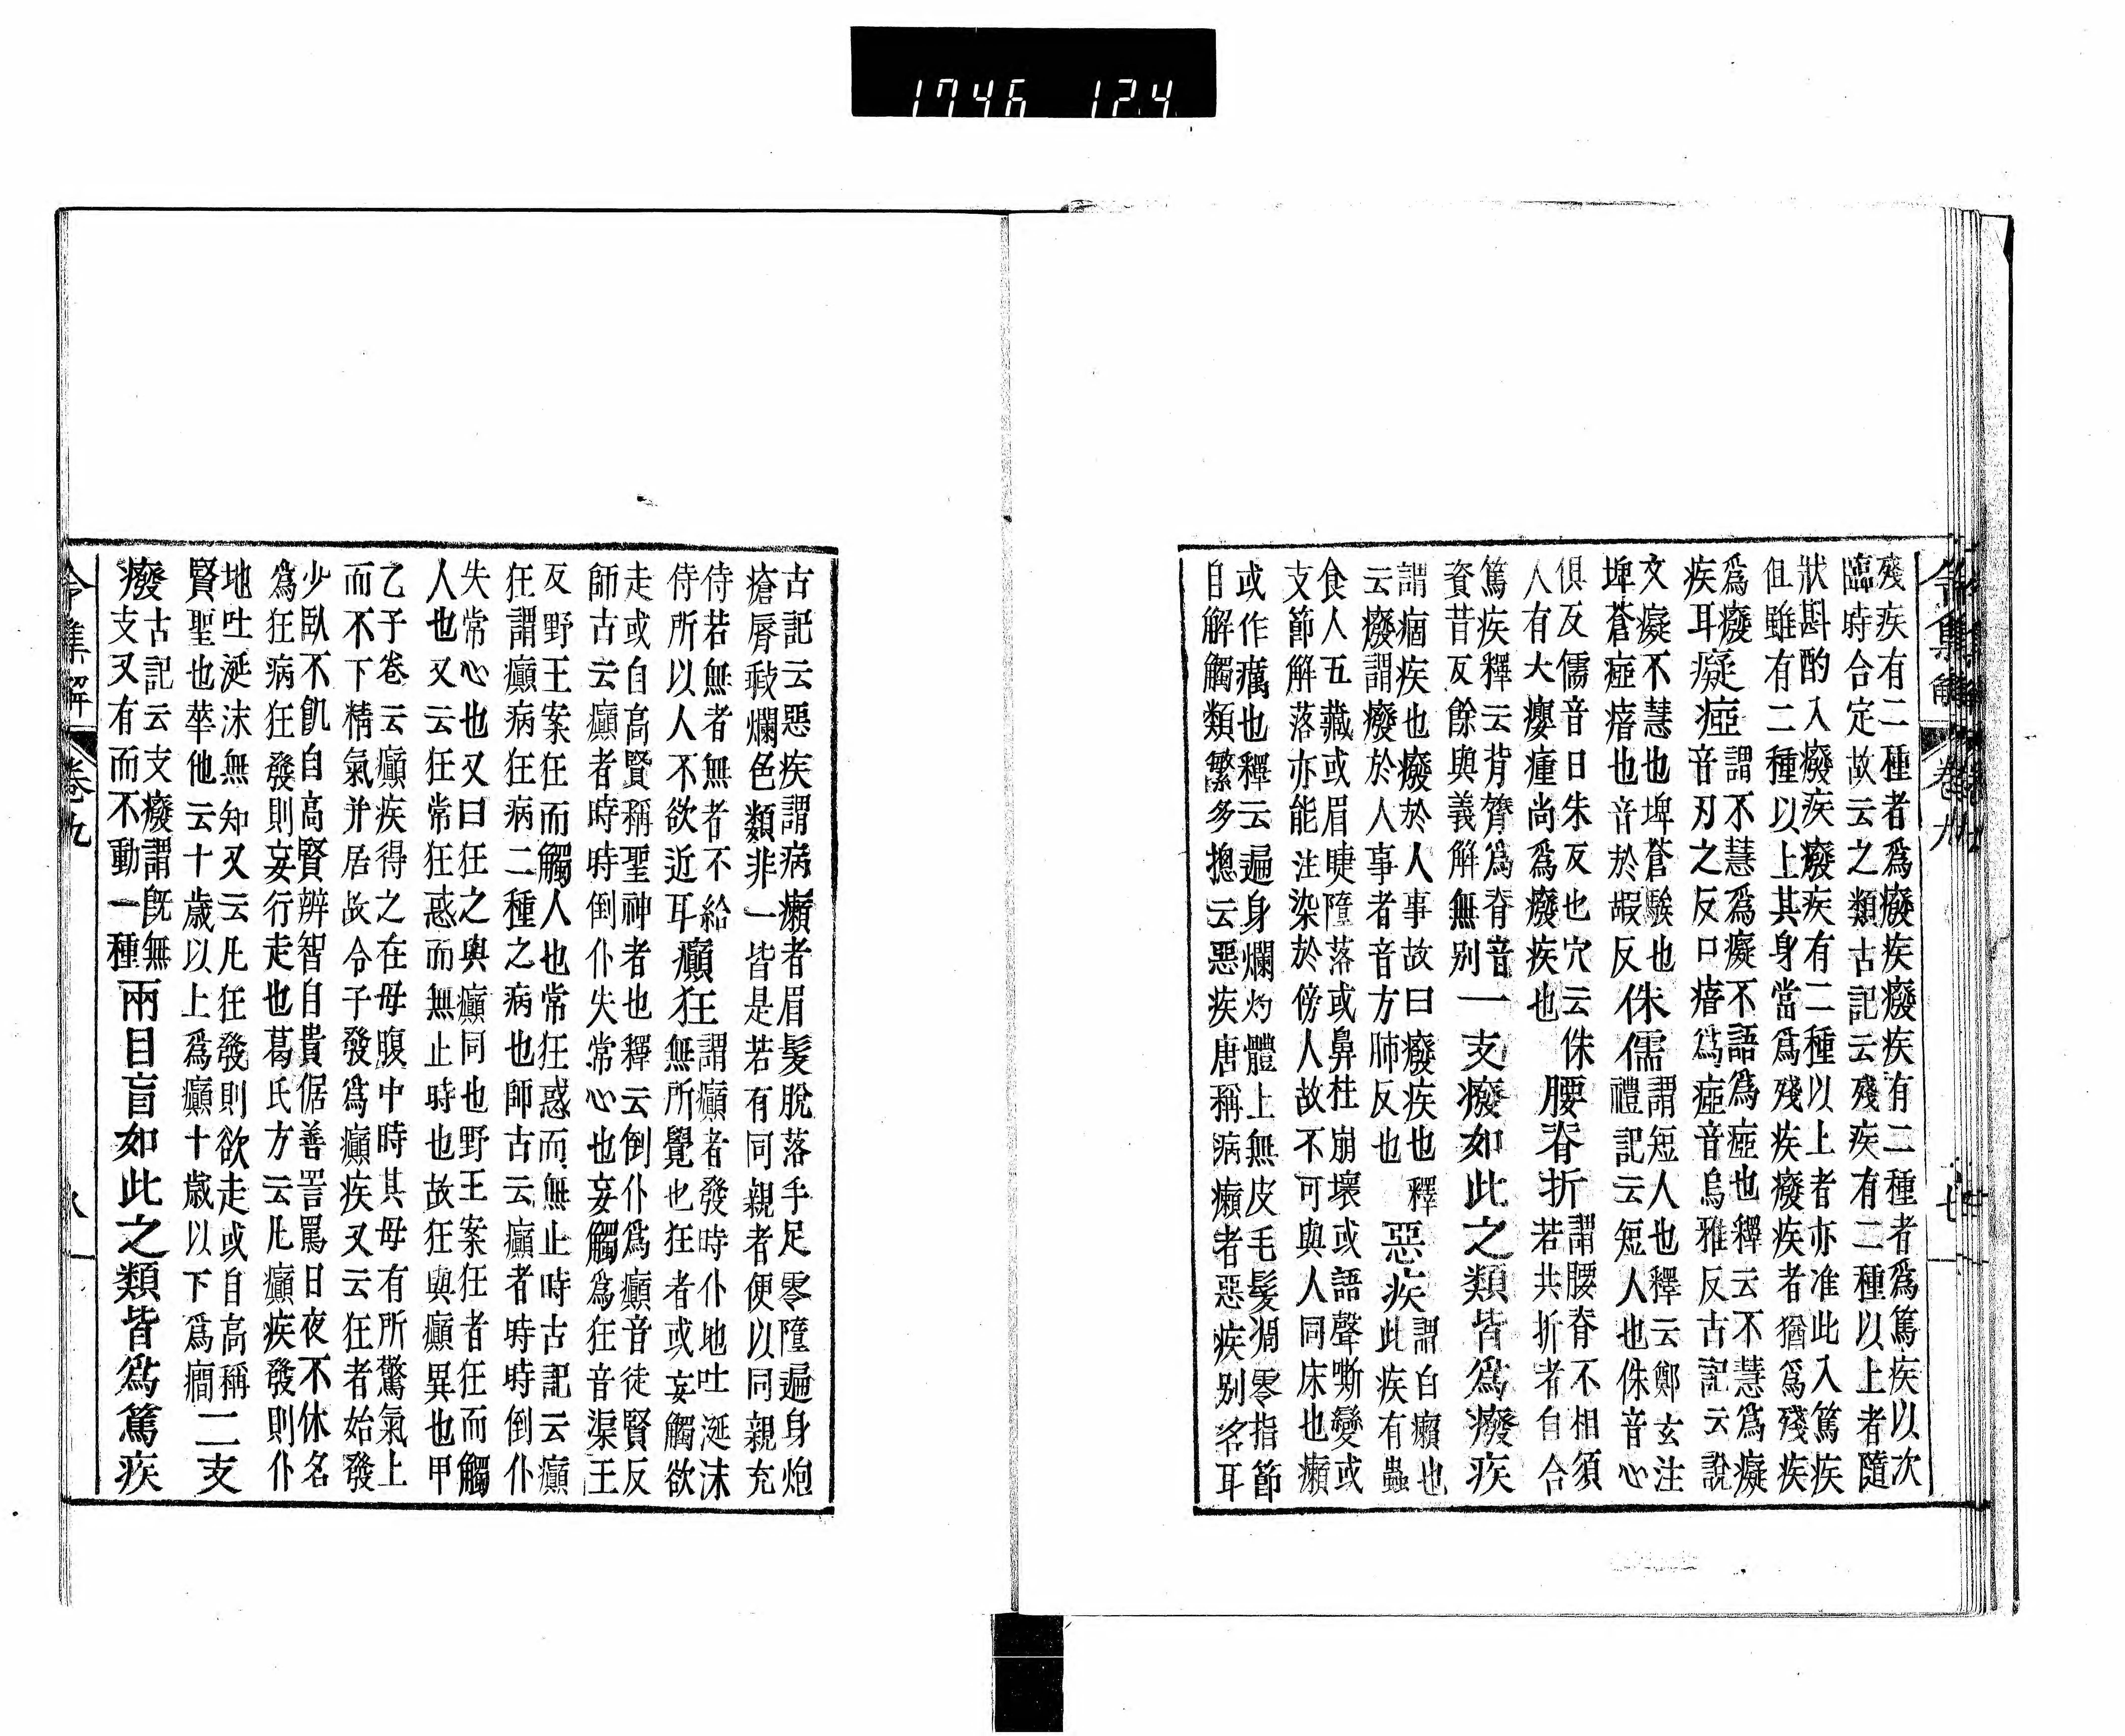 1746 12.4
令集解 卷九 七
殘疾有二種者爲癈疾癈疾有二種者爲篤疾以次
臨時合定故云之類古記云殘疾有二種以上者隨
狀斟酌入癈疾癈疾有二種以上者亦准此入篤疾
但雖有二種以上其身當爲殘疾癈疾者猶爲殘疾
爲癈
疾耳
癡瘂
謂不慧爲癡不語爲瘂也釋云不慧爲癡
音刃之反口瘖爲瘂音烏雅反古記云說
文癡不慧也埤蒼騃也
埤蒼瘂瘖也音於嘏反
侏儒
謂短人也釋云鄭玄注
禮記云短人也侏音心
俱反儒音日朱反也穴云侏
人有大癭瘇尚爲癈疾也
腰脊折
謂腰脊不相須
若共折者自合
篤疾釋云背膂爲脊音
資昔反餘與義解無別
一支癈如此之類皆爲癈疾
謂痼疾也癈於人事故曰癈疾也釋
云癈謂癈於人事者音方肺反也
惡疾
謂白癩也
此疾有蟲
食人五藏或眉睫墮落或鼻柱崩壞或語聲嘶變或
支節解落亦能注染於傍人故不可與人同床也癩
或作癘也釋云遍身爛灼體上無皮毛髮凋零指節
自解觸類繁多摠云惡疾唐稱病癩者惡疾別名耳
古記云惡疾謂病癩者眉髮脫落手足零墮遍身炮
瘡脣㿺爛色類非一皆是若有同親者便以同親充
侍若無者無者不給
侍所以人不欲近耳
癲狂
謂癲者發時仆地吐涎沫
無所覺也狂者或妄觸欲
走或自高賢稱聖神者也釋云倒仆爲癲音徒賢反
師古云癲者時時倒仆失常心也妄觸爲狂音渠王
反野王案狂而觸人也常狂惑而無止時古記云癲
狂謂癲病狂病二種之病也師古云癲者時時倒仆
失常心也又曰狂之與癲同也野王案狂者狂而觸
人也又云狂常狂惑而無止時也故狂與癲異也甲
乙子卷云癲疾得之在母腹中時其母有所驚氣上
而不下精氣并居故令子發爲癲疾又云狂者始發
少臥不飢自高賢辨智自貴倨善詈罵日夜不休名
爲狂病狂發則妄行走也葛氏方云凡癲疾發則仆
地吐涎沫無知又云凡狂發則欲走或自高稱
賢聖也華他云十歲以上爲癲十歲以下爲癇
二支
癈
古記云支癈謂既無
支又有而不動一種
兩目盲如此之類皆爲篤疾
令集解 卷九 八